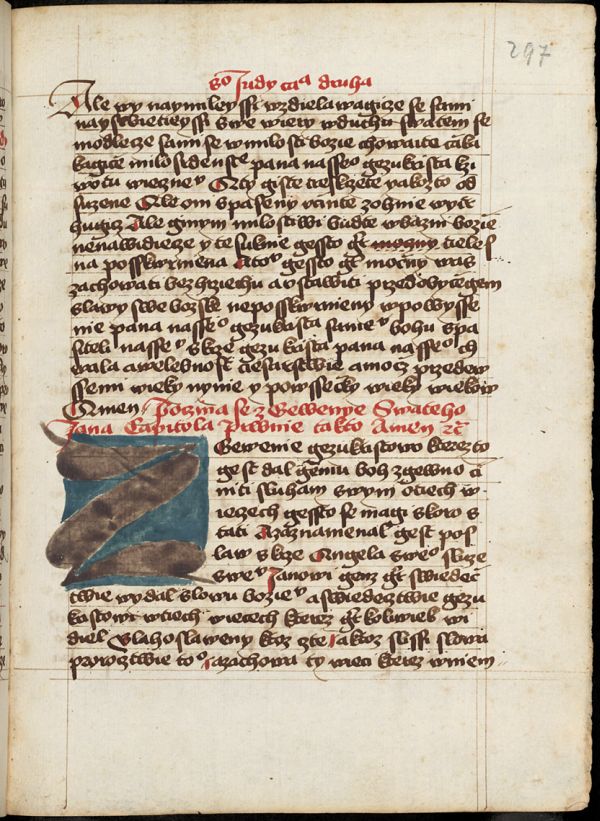 297
So Judy caa druha
Ale wy naymileyssi wzdielawagicze se sami
nayswietieyssi swe wiery w duchu swatem se
modlecze sami se w milosti bozie chowaite
kagicze milosrdenste pana nasseo gezukrista k zi
wotu wieczneu A ty giste treskczete yakozto od
suzene Ale oni spaseny ucinte z ohnie wyte
hugicz Ale ginym milostiwi budte w bazni bozie
nenawidiecze y te suknie gessto gt mozny tieles
na posskwrniena A tou gessto gt moczny was
zachowati bez hrziechu a ustawiti przed obyczegem
slawy swe bozske neposskwrnieny w powysse
nie pana nasseo gezukrista sameu bohu spa
siteli nasseu skrze gezukrista pana nasseo ch
wala a welebnost ciesarstwie a mocz przede w
ssemi wieky nynie y po wssecky wieky wiekow
Amen Poczina se z Gewenye Swateho
Jana Capitola Prwnie takto Amen zc
Gewenie gezukristowo kterezto
gest dal gemu boh zgewno ci
niti sluham swym o tiech w
ieczech gessto se magi skoro s
tati A zaznamenal gest pos
law skrze Angela sweo sluze
sweu Janowi genz gt swiedec
twie wydal slowu bozieu a swiedecztwie gezu
kristowi w tiech wiecech kterez gt kolwiek wi
diel Blahoslaweny ktoz czte a ktoz slissi slowa
proroztwie too a zachowa ty wieci kterez w niem